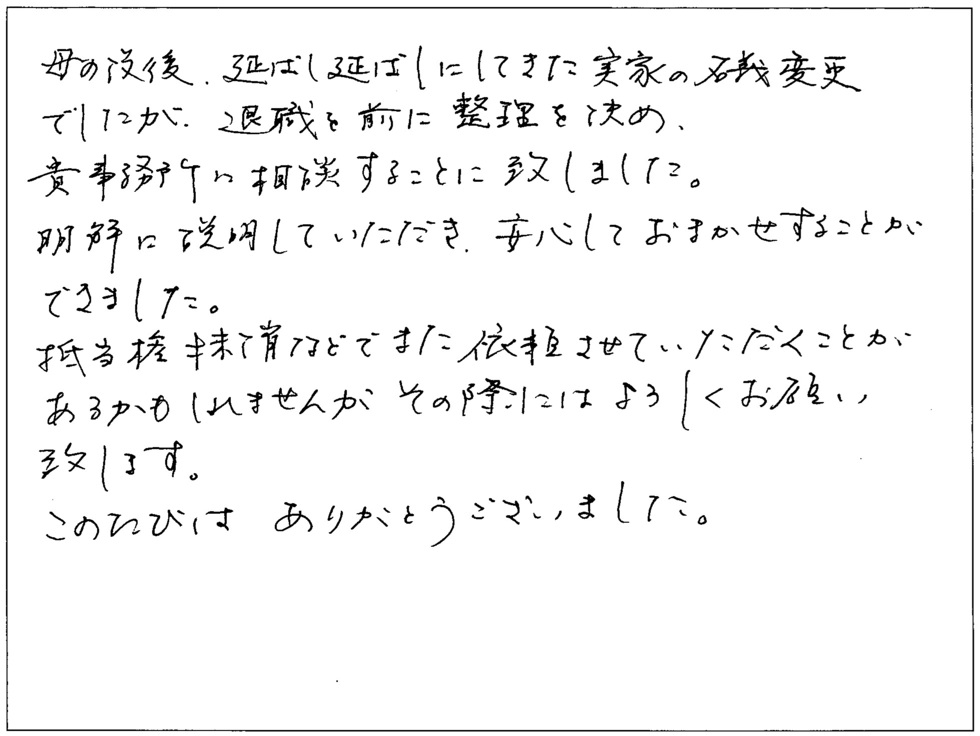 母の没後、延ばし延ばしにしてきた実家の名義変更
でしたが、退職を前に整理を決め、
貴事務所に相談することに致しました。
明解に説明していただき、安心しておまかせすることが
できました。
抵当権抹消などでまた依頼させていただくことが
あるかもしれませんが その際にはよろしくお願い
致します。
このたびは ありがとうございました。